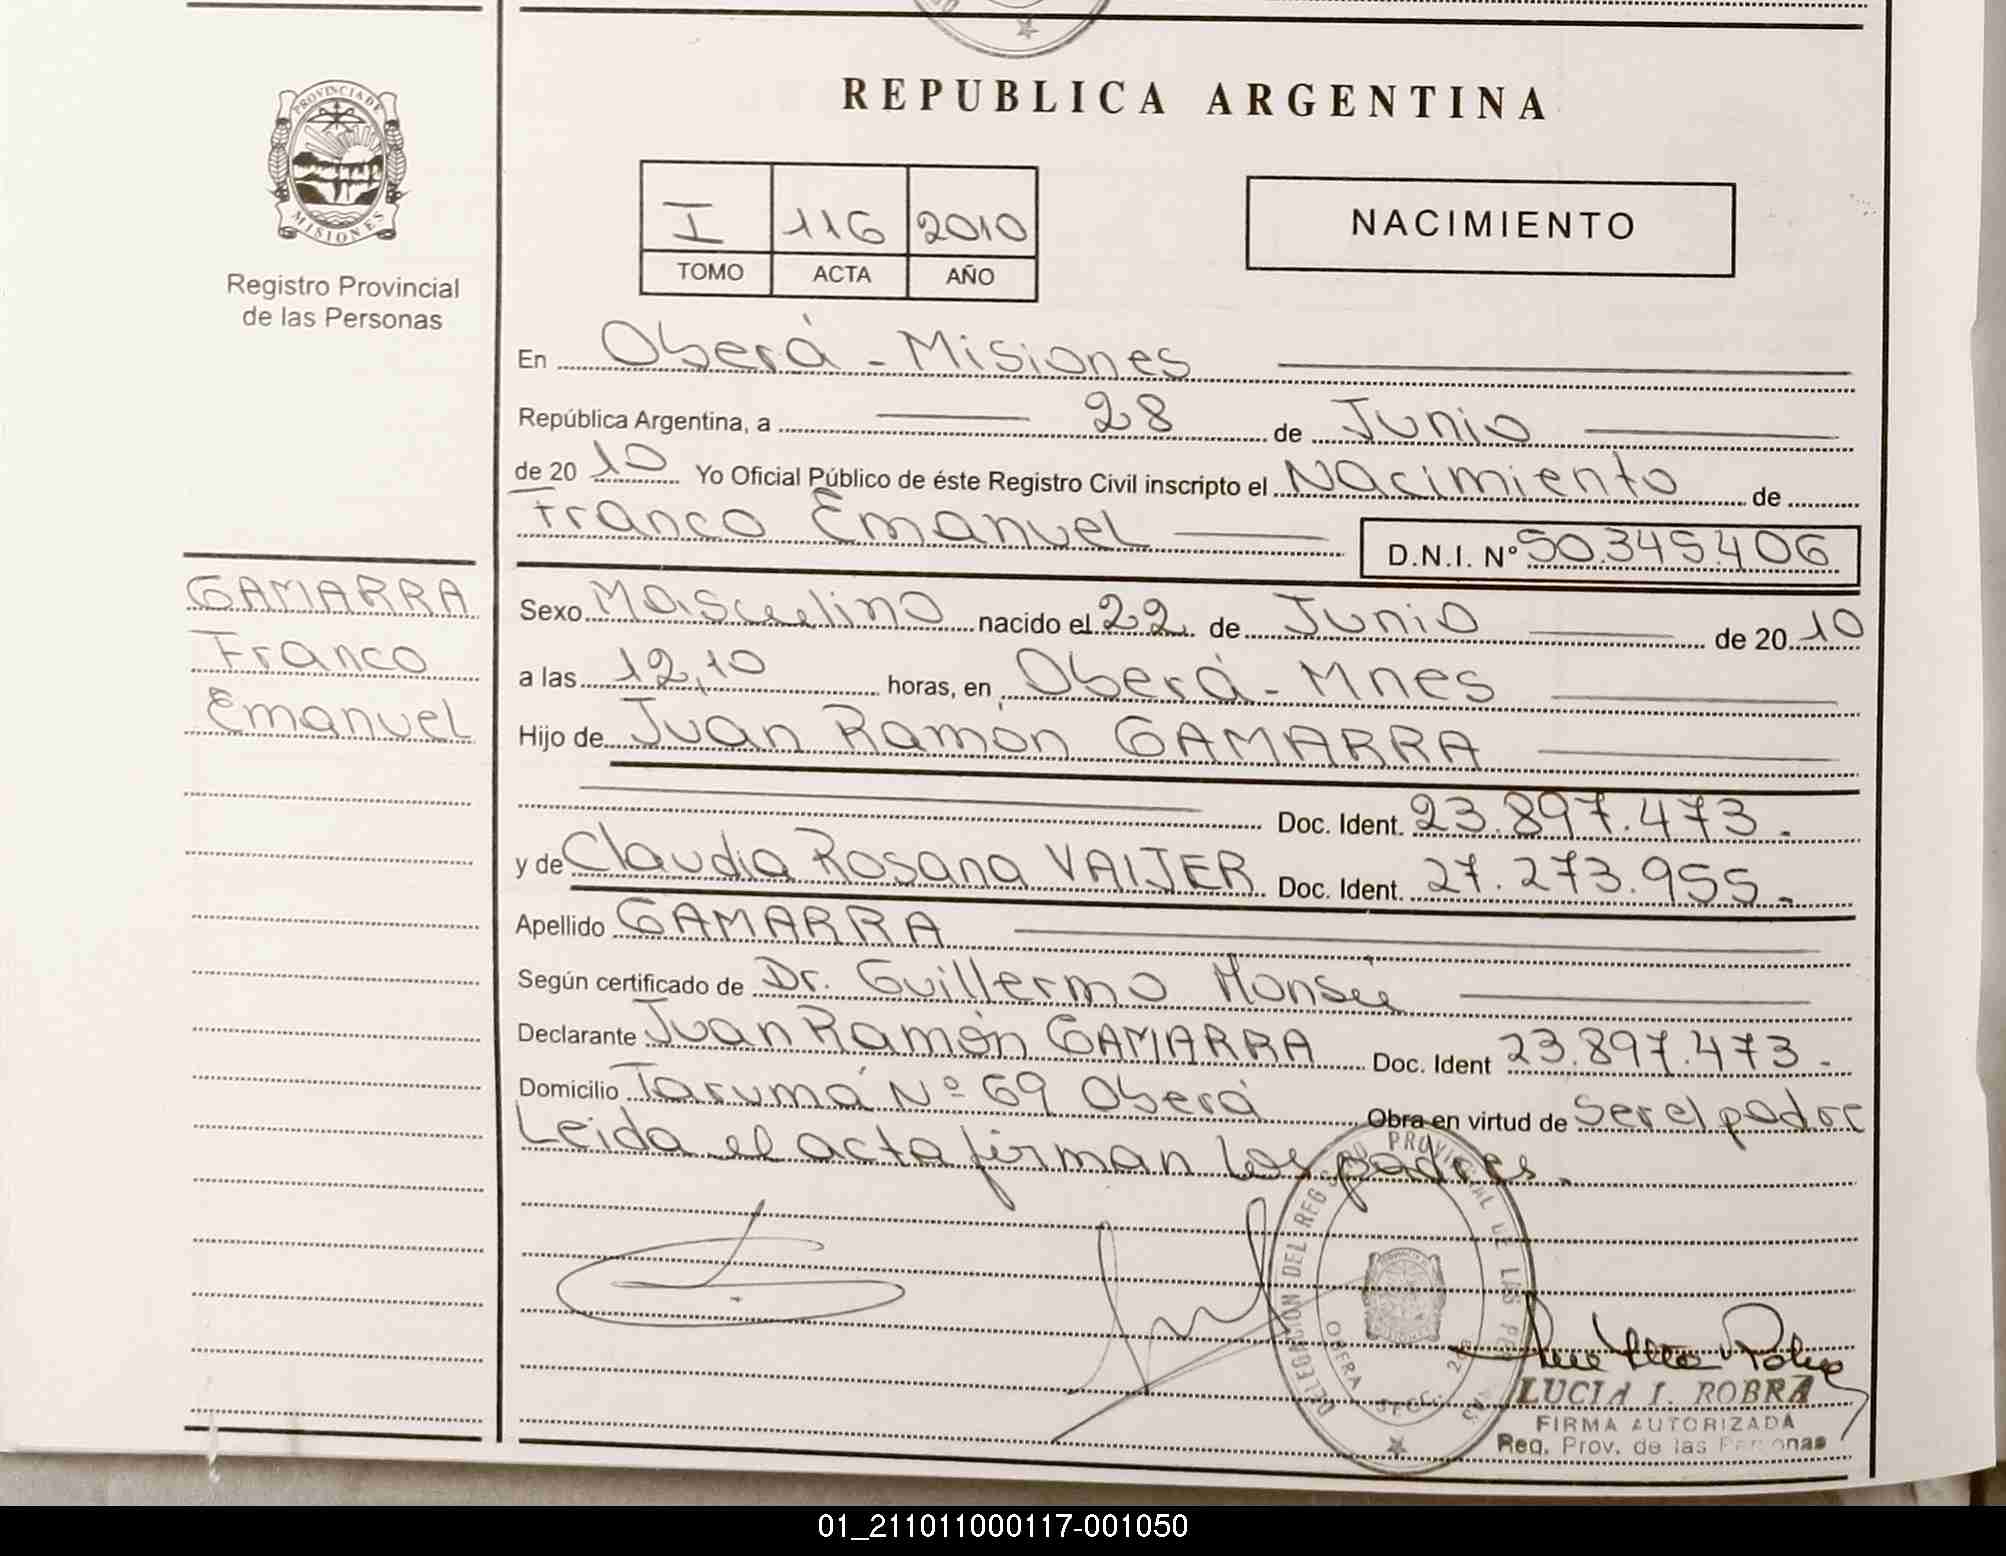 REPUBLICA ARGENTINA
PROVINCIA DE
MISIONES
Registro Provincial
de las Personas
I 116 2010
TOMO ACTA AÑO
NACIMIENTO
En Oberá - Misiones
República Argentina, a 28 de Junio
de 2010 Yo Oficial Público de éste Registro Civil inscripto el Nacimiento de
Franco Emanuel D.N.I. Nº 50.345.406
GAMARRA
Franco
Emanuel
Sexo Masculino nacido el 22 de Junio de 2010
a las 12,10 horas, en Oberá - Mnes
Hijo de Juan Ramón GAMARRA
Doc. Ident. 23.897.473.
y de Claudia Rosana VAIJER Doc. Ident. 27.273.955.
Apellido GAMARRA
Según certificado de Dr. Guillermo
Declarante Juan Ramón GAMARRA Doc. Ident 23.897.473.
Domicilio Tarumá Nº 69 Oberá Obra en virtud de Ser el padre
Leida el acta firman los padres.
DELEGACION DEL REGISTRO PROVINCIAL DE LAS PERSONAS
OBERA SECC.
LUCIA I. ROBRA
FIRMA AUTORIZADA
Reg. Prov. de las Personas
01_211011000117-001050